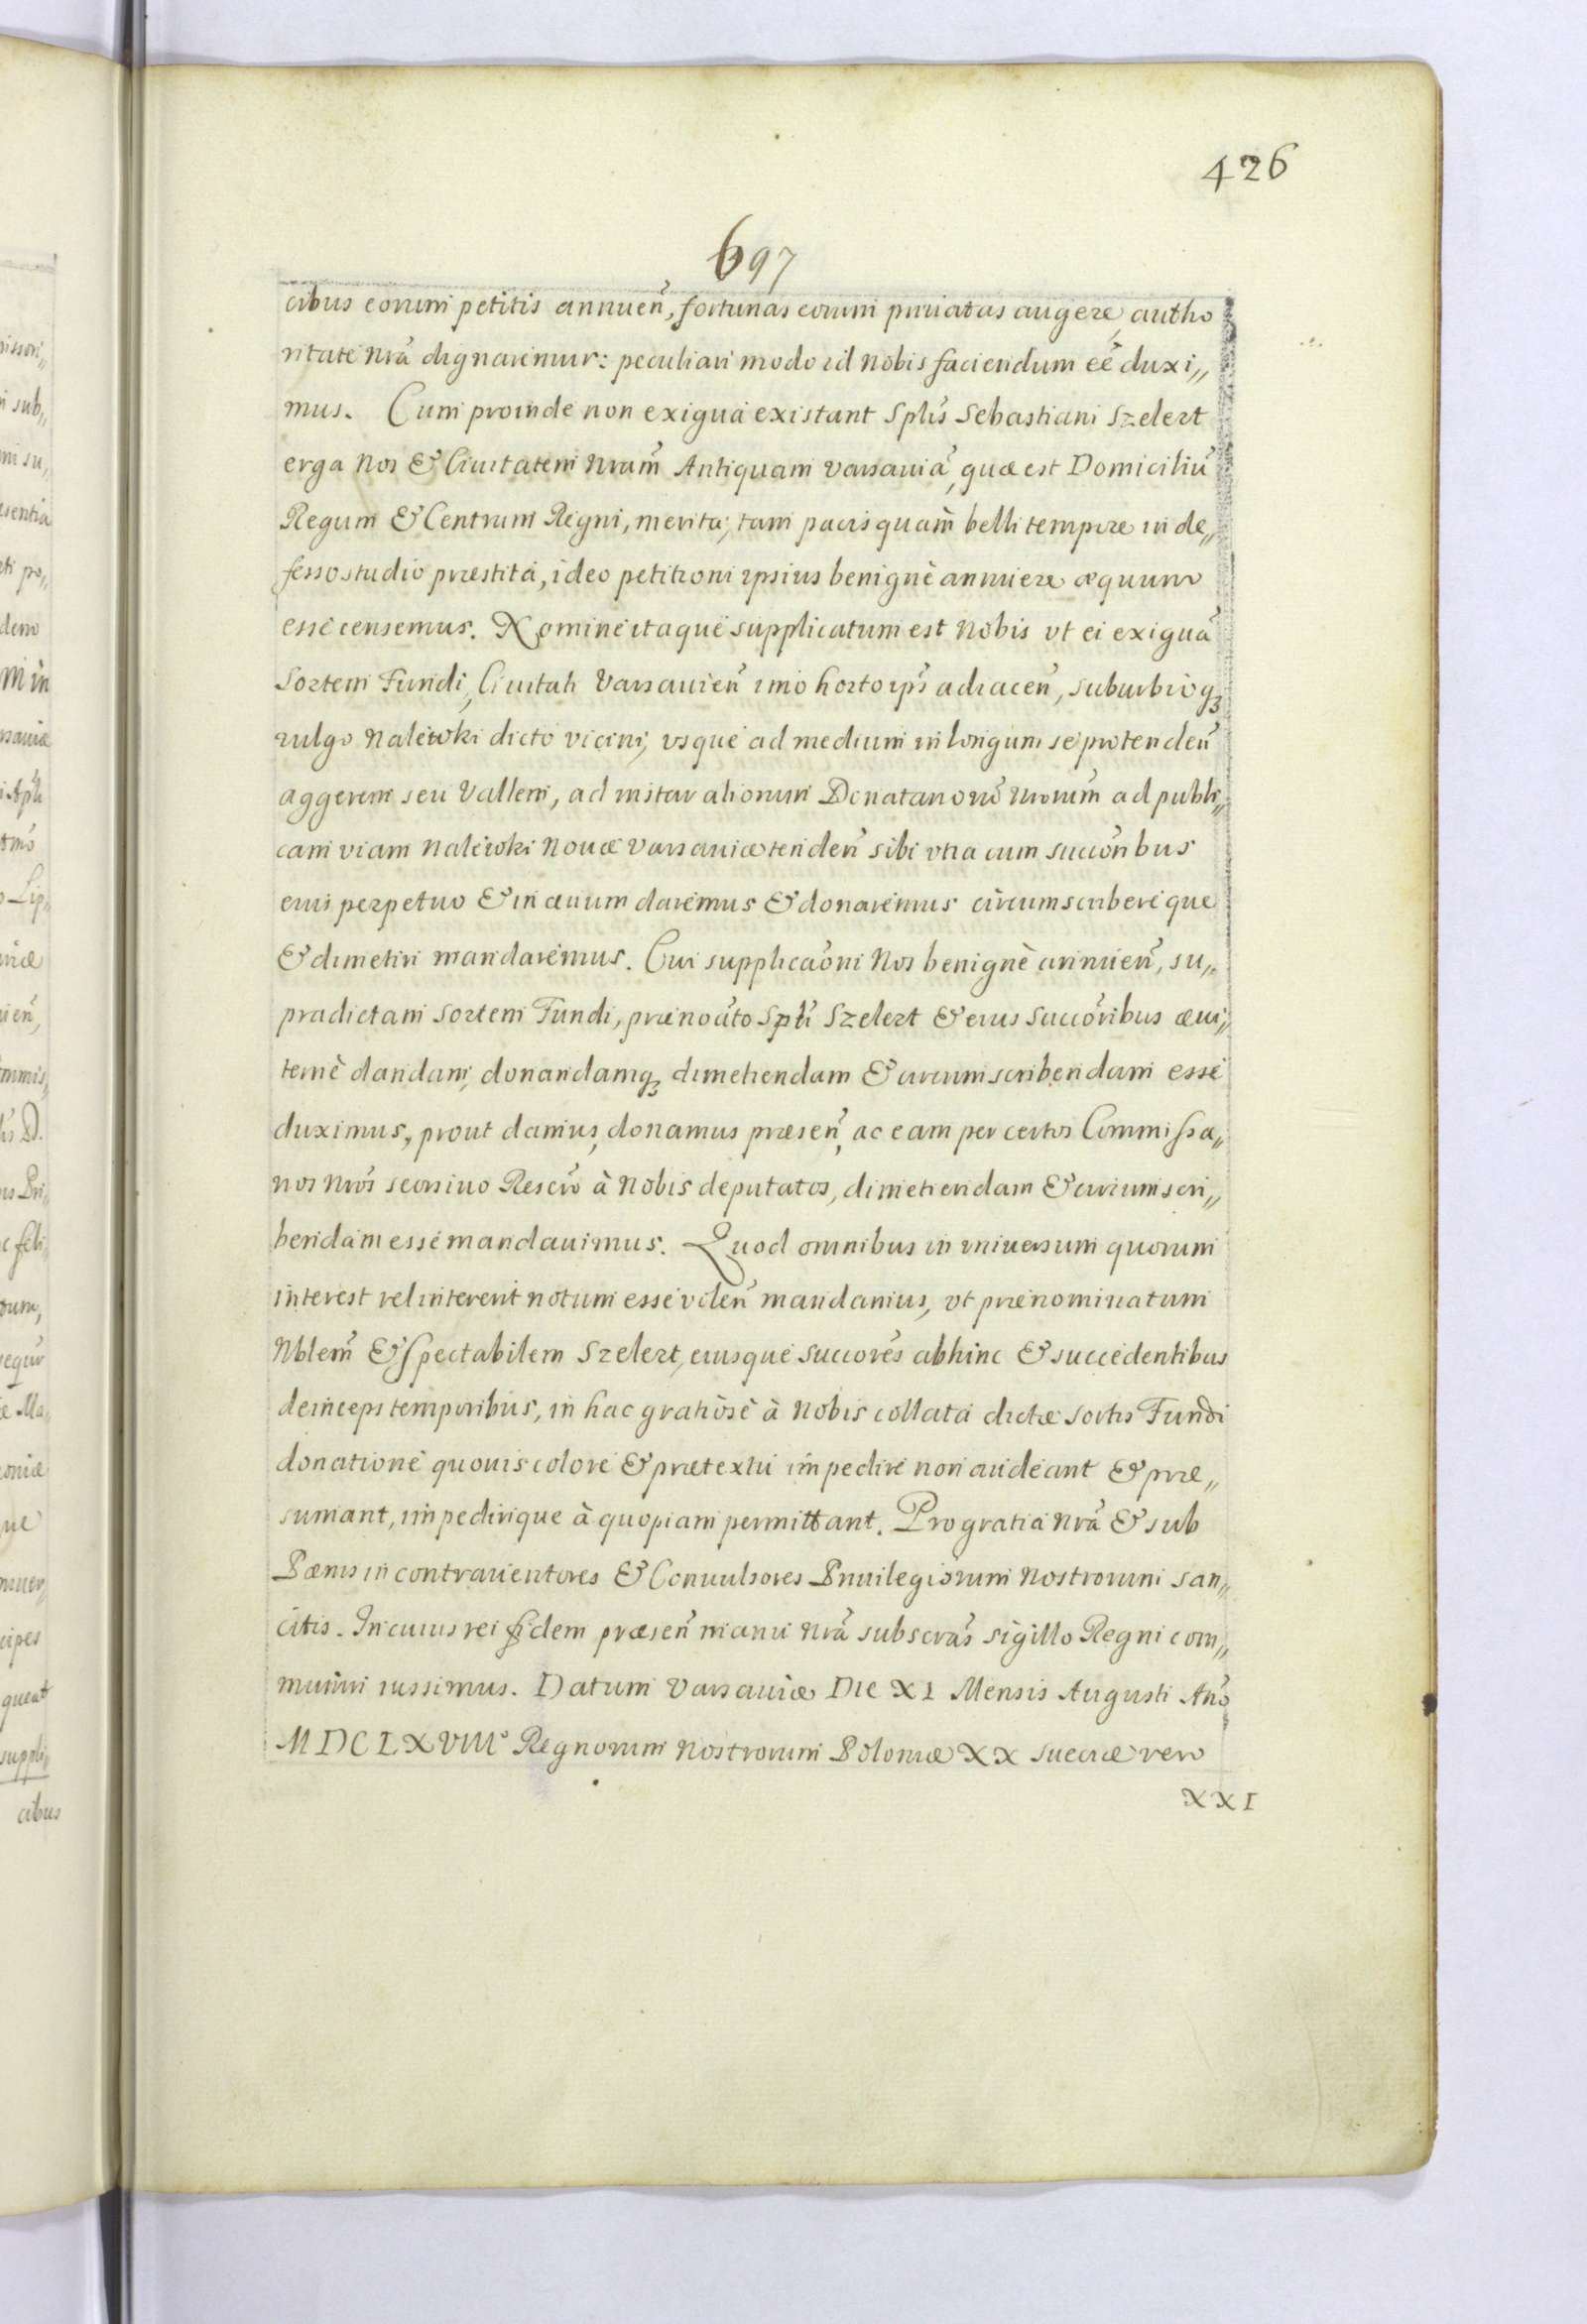 426
697
cibus eorum petitis annueñ, fortunas eorum priuatas augere, autho
ritate nrã dignaremur: peculiari modo id nobis faciendum eẽ duxi„
mus. Cum proinde non exigua existant Splis̃ Sebastiani Szelert
erga Nos & Ciuitatem Nram̃ Antiquam Varsauiã, quæ est Domiciliũ
Regum & Centrum Regni, merita, tam pacis quàm belli tempore inde„
fesso studio præstita, ideo petitioni ipsius benignè annuere æquum
esse censemus. Nomine itaque supplicatum est Nobis vt ei exiguã
Sortem Fundi, Ciuitati Varsauieñ imo horto ips̃ adiaceñ, suburbioq3
vulgo Nalewki dicto vicini, vsque ad medium in longum se protendeñ
aggerem seu Vallem, ad instar aliorum Donatariorũ nrorum̃ ad publi„
cam viam Nalewki Nouæ Varsauiæ tendeñ sibi vna cum succor̃ibus
eius perpetuo & in æuum daremus & donaremus circumscribereque
& dimetiri mandaremus. Cui supplicaõni Nos benignè annueñ, su„
pradictam Sortem Fundi, prænoiãto Splĩ Szelert & eius Succor̃ibus æui„
ternè dandam, donandamq3 dimetiendam & circumscribendam esse
duximus, prout damus, donamus præseñ, ac eam per certos Commissa„
rios Nros̃ seorsiuo Rescr̃o à Nobis deputatos, dimetiendam & circumscri„
bendam esse mandauimus. Quod omnibus in vniuersum quorum
interest vel intererit notum esse voleñ mandamus, vt prænominatum
Nblem̃ & Spectabilem Szelert, eiusque succores̃ abhinc & succedentibus
deinceps temporibus, in hac gratiosè à Nobis collata dictæ sortis Fundi
donatione quouis colore & prætextu impedire non audeant & præ„
sumant, impedirique à quopiam permittant. Pro gratia nrã & sub
Pænis in contrauentores & Conuulsores Priuilegiorum nostrorum san„
citis. In cuius rei fidem præseñ manu nrã subscras̃ sigillo Regni com„
muniri iussimus. Datum Varsauiæ Die XI Mensis Augusti Anõ
MDCLXVIII° Regnorum Nostrorum Poloniæ XX Sueciæ vero
XXI